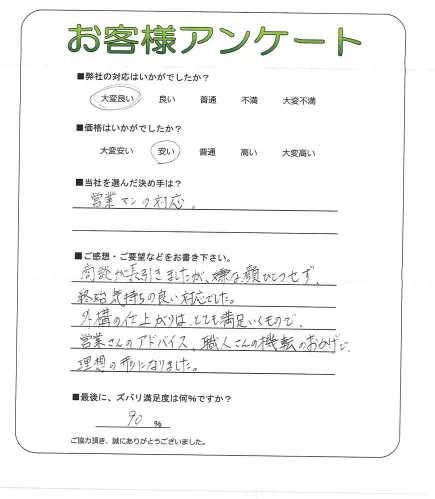 お客様アンケート
■弊社の対応はいかがでしたか?
大変良い 良い 普通 不満 大変不満
■価格はいかがでしたか?
大変安い 安い 普通 高い 大変高い
■当社を選んだ決め手は?
営業マンの対応。
■ご感想・ご要望などをお書き下さい。
商談が長引きましたが、嫌な顔ひとつせず、
終始気持ちの良い対応でした。
外構の仕上がりは、とても満足いくもので、
営業さんのアドバイス、職人さんの機転のおかげで、
理想の形になりました。
■最後に、ズバリ満足度は何%ですか?
90 %
ご協力頂き、誠にありがとうございました。